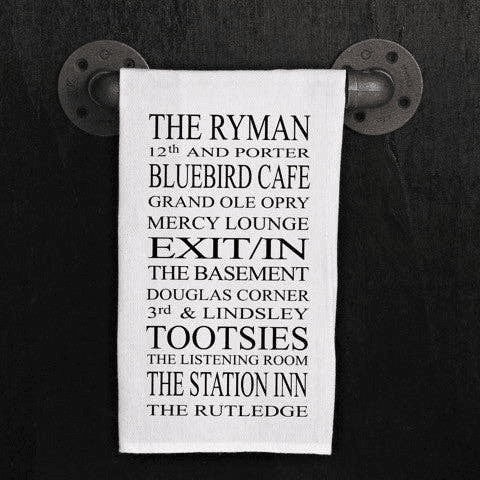 THE RYMAN
12th AND PORTER
BLUEBIRD CAFE
GRAND OLE OPRY
MERCY LOUNGE
EXIT/IN
THE BASEMENT
DOUGLAS CORNER
3rd & LINDSLEY
TOOTSIES
THE LISTENING ROOM
THE STATION INN
THE RUTLEDGE